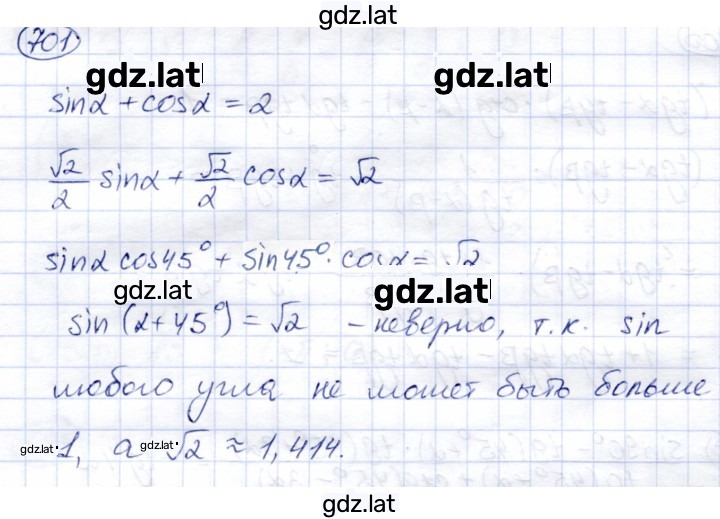 gdz.lat
701.
gdz.lat gdz.lat
sinα + cosα = 2
√2/2 sinα + √2/2 cosα = √2
sinα cos45° + sin45° · cosα = √2
gdz.lat gdz.lat
sin (α + 45°) = √2 - неверно, т.к. sin
любого угла не может быть больше
gdz.lat 1, а gdz.lat √2 ≈ 1,414.
gdz.lat